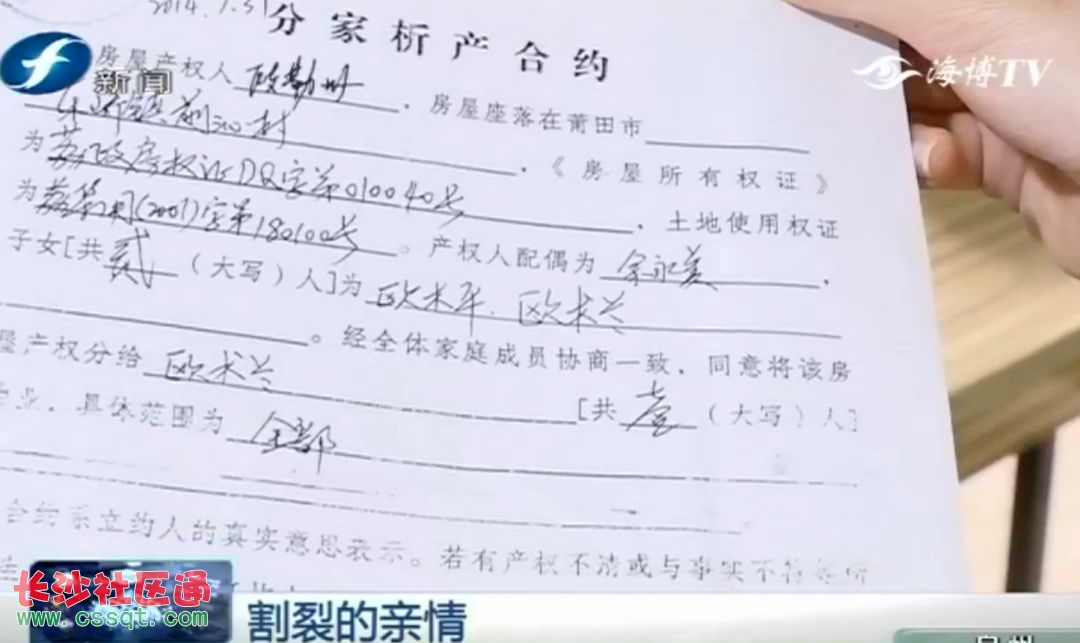 2014.7.31
分家析产合约
新闻
海博TV
房屋产权人 欧勤州 ,房屋座落在莆田市
东峤镇前沁村 ,《房屋所有权证》
为荔政房权证DQ字第010040号 ,土地使用权证
为荔集用(2001)字第180100号 。产权人配偶为 余永美 ,
子女[共 贰 (大写)人]为 欧术平、欧术兰
。经全体家庭成员协商一致,同意将该房
屋产权分给 欧术兰 [共 壹 (大写)人]
业,具体范围为 全部
合约系立约人的真实意思表示。若有产权不清或与事实不符
长沙社区通
www.cssqt.com
割裂的亲情